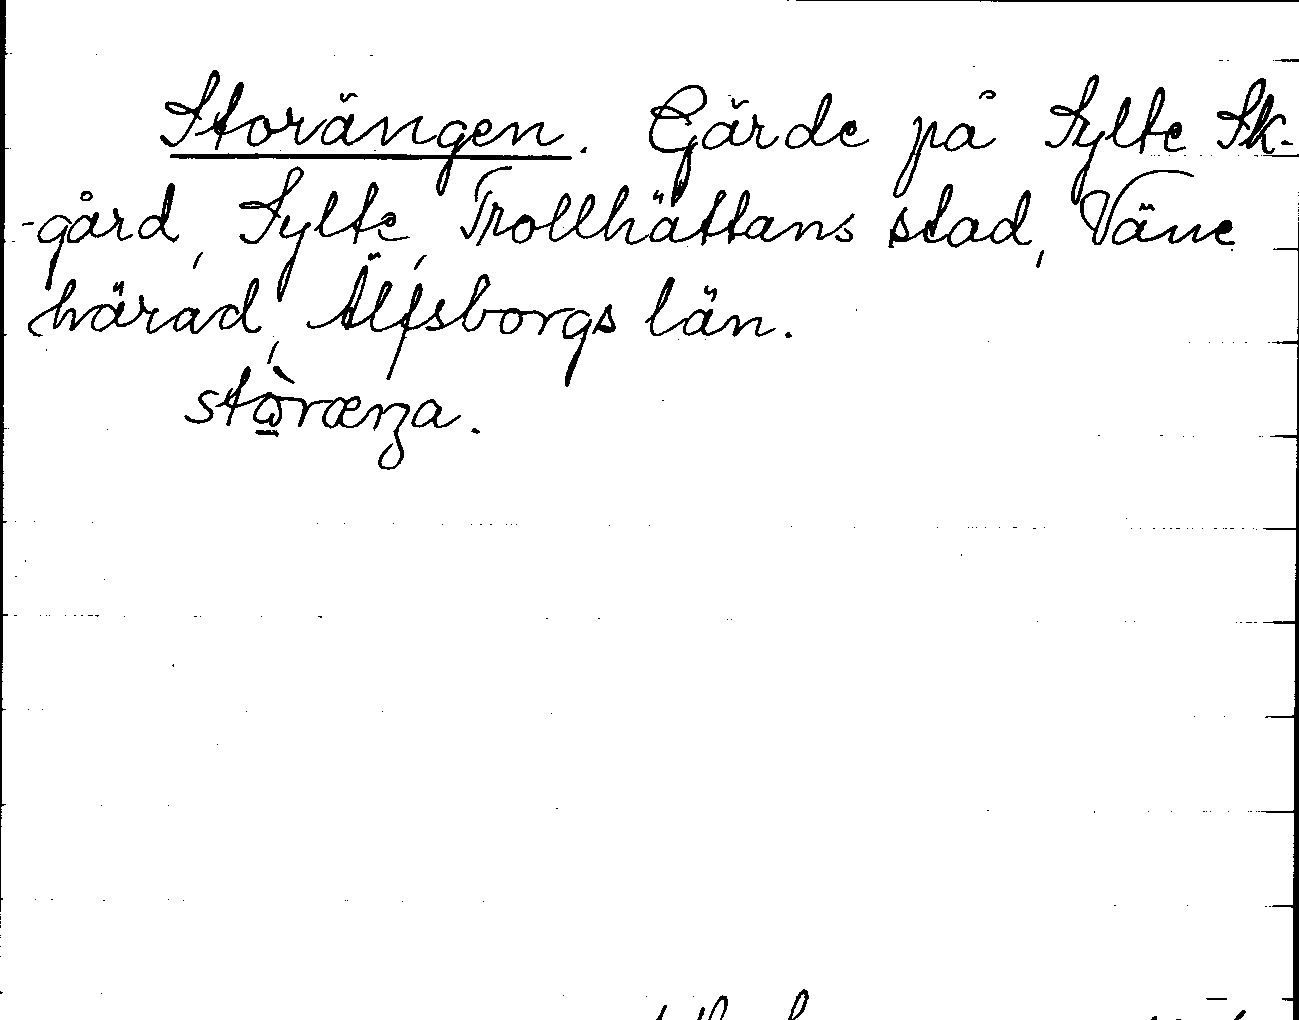 Storängen. Gärde på Sylte Sk-
-gård, Sylte, Trollhättans stad, Väne
härad, Älfsborgs län.
stὼ̲ræŋa.